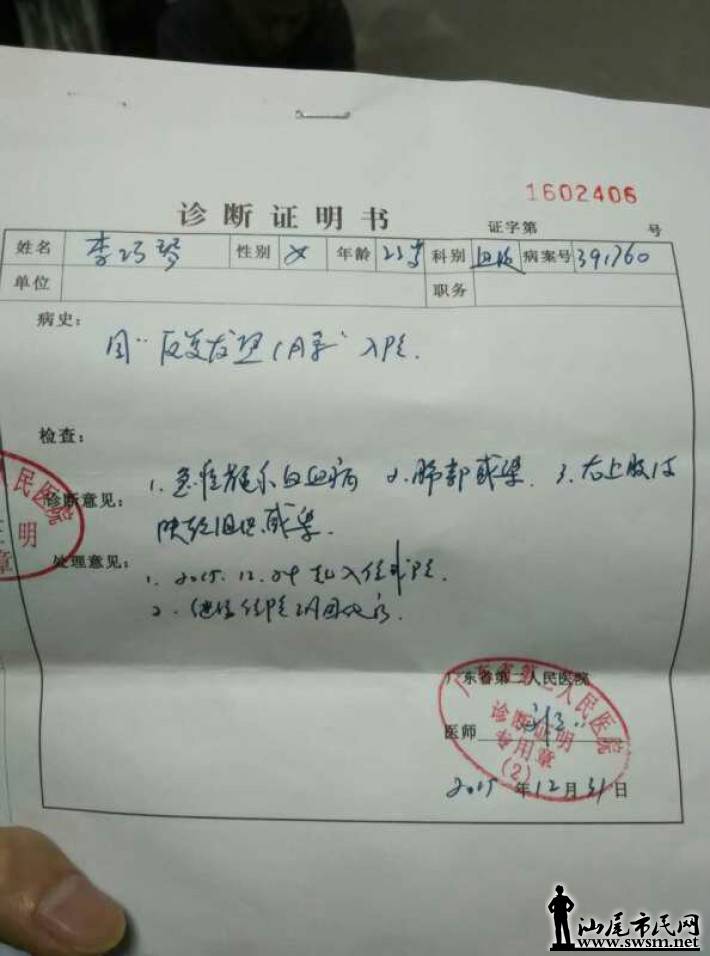 1602406
诊断证明书 证字第 号
姓名 李巧琴 性别 女 年龄 23岁 科别 血液 病案号 391760
单位 职务
病史：
因“反复发热1月余”入院.
检查：
诊断意见： 1. 急性髓系白血病 2. 肺部感染. 3. 右上肢皮
肤软组织感染.
处理意见： 1. 2015.12.04 起入住我院.
2. 继续住院
广东省第二人民医院
医师
2015年12月31日
广东省第二人民医院
诊断证明
专用章
(2)
民医院
明
章
汕尾市民网
www.swsm.net